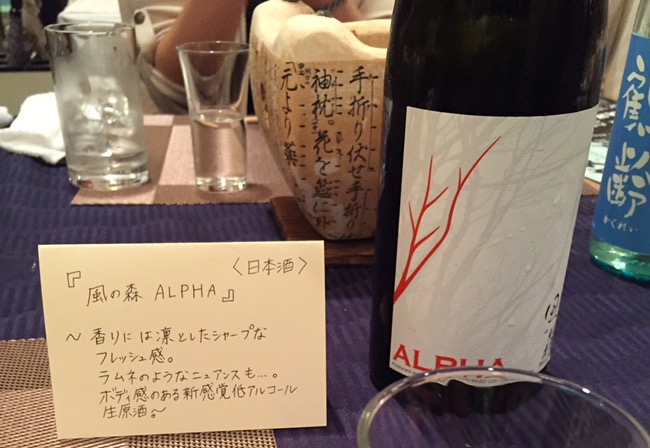 〈日本酒〉
『風の森 ALPHA』
～ 香りには凛としたシャープな
フレッシュ感。
ラムネのようなニュアンスも…。
ボディ感のある新感覚低アルコール
生原酒。～
手折り伏せ手折
袖枕。花を
元より
ALPHA
風の森
鶴齢
かくれい